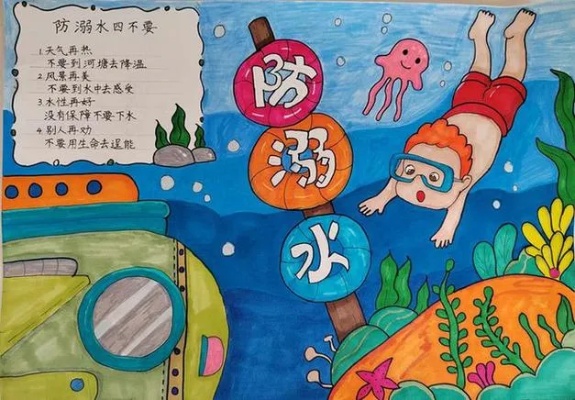 防溺水四不要
1.天气再热
不要到河塘去降温
2.风景再美
不要到水中去感受
3.水性再好
没有保障不要下水
4.别人再劝
不要用生命去逞能
防
溺
水